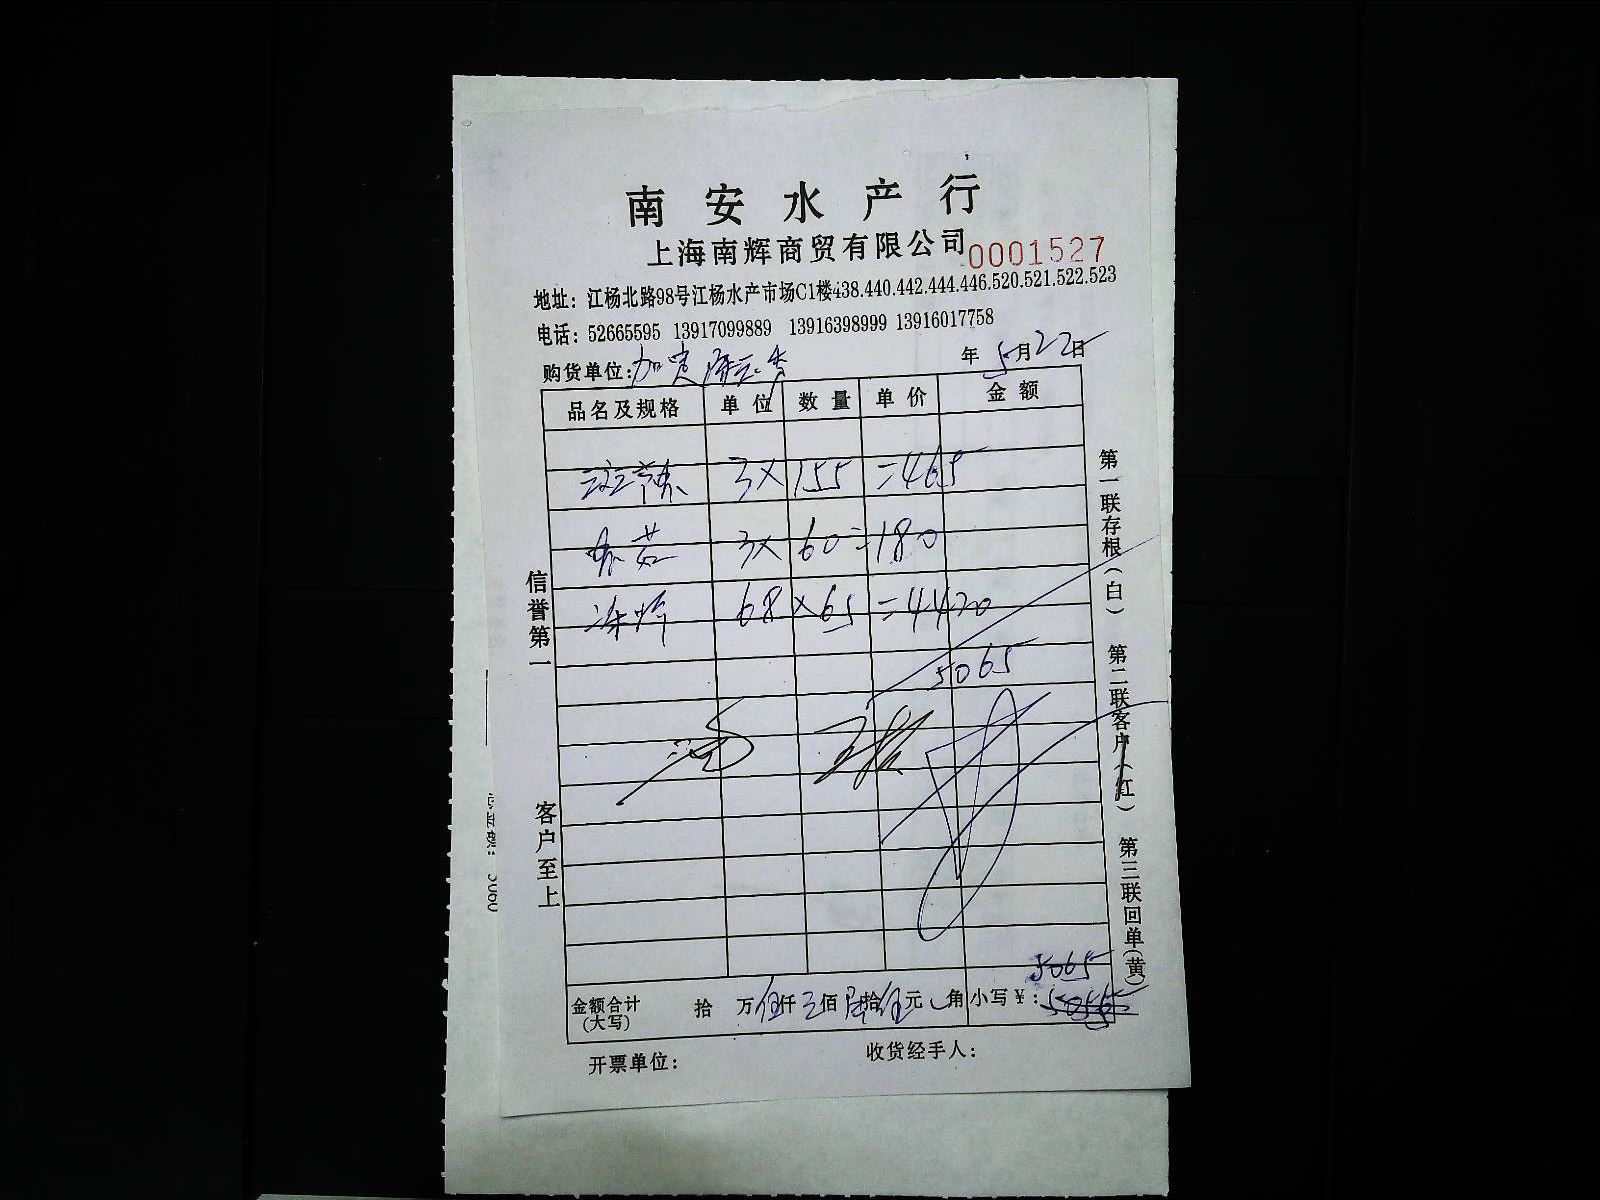 南安水产行
上海南辉商贸有限公司 0001527
地址：江杨北路98号江杨水产市场C1楼438.440.442.444.446.520.521.522.523
电话：52665595 13917099889 13916398999 13916017758
购货单位： 年 5月22日
品名及规格 单位 数量 单价 金额
3× 155 =465
3× 60 =180
68 × 65 =4420
5065
信誉第一
客户至上
第一联存根（白） 第二联客户（红） 第三联回单（黄）
5065
金额合计 拾 万伍仟 佰陆拾伍元 角 小写￥：
(大写)
开票单位： 收货经手人：